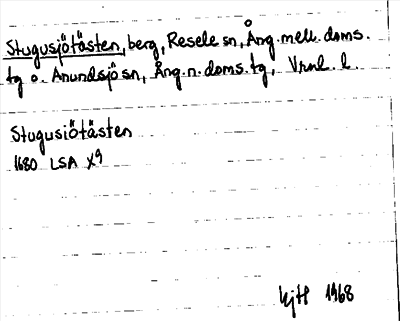 Stugusjötåsten, berg, Resele sn, Ång. mell. doms.
tg o. Anundsjö sn, Ång. n. doms. tg, Vrnl. l.
Stugusiötåsten
1680 LSA X9
1968